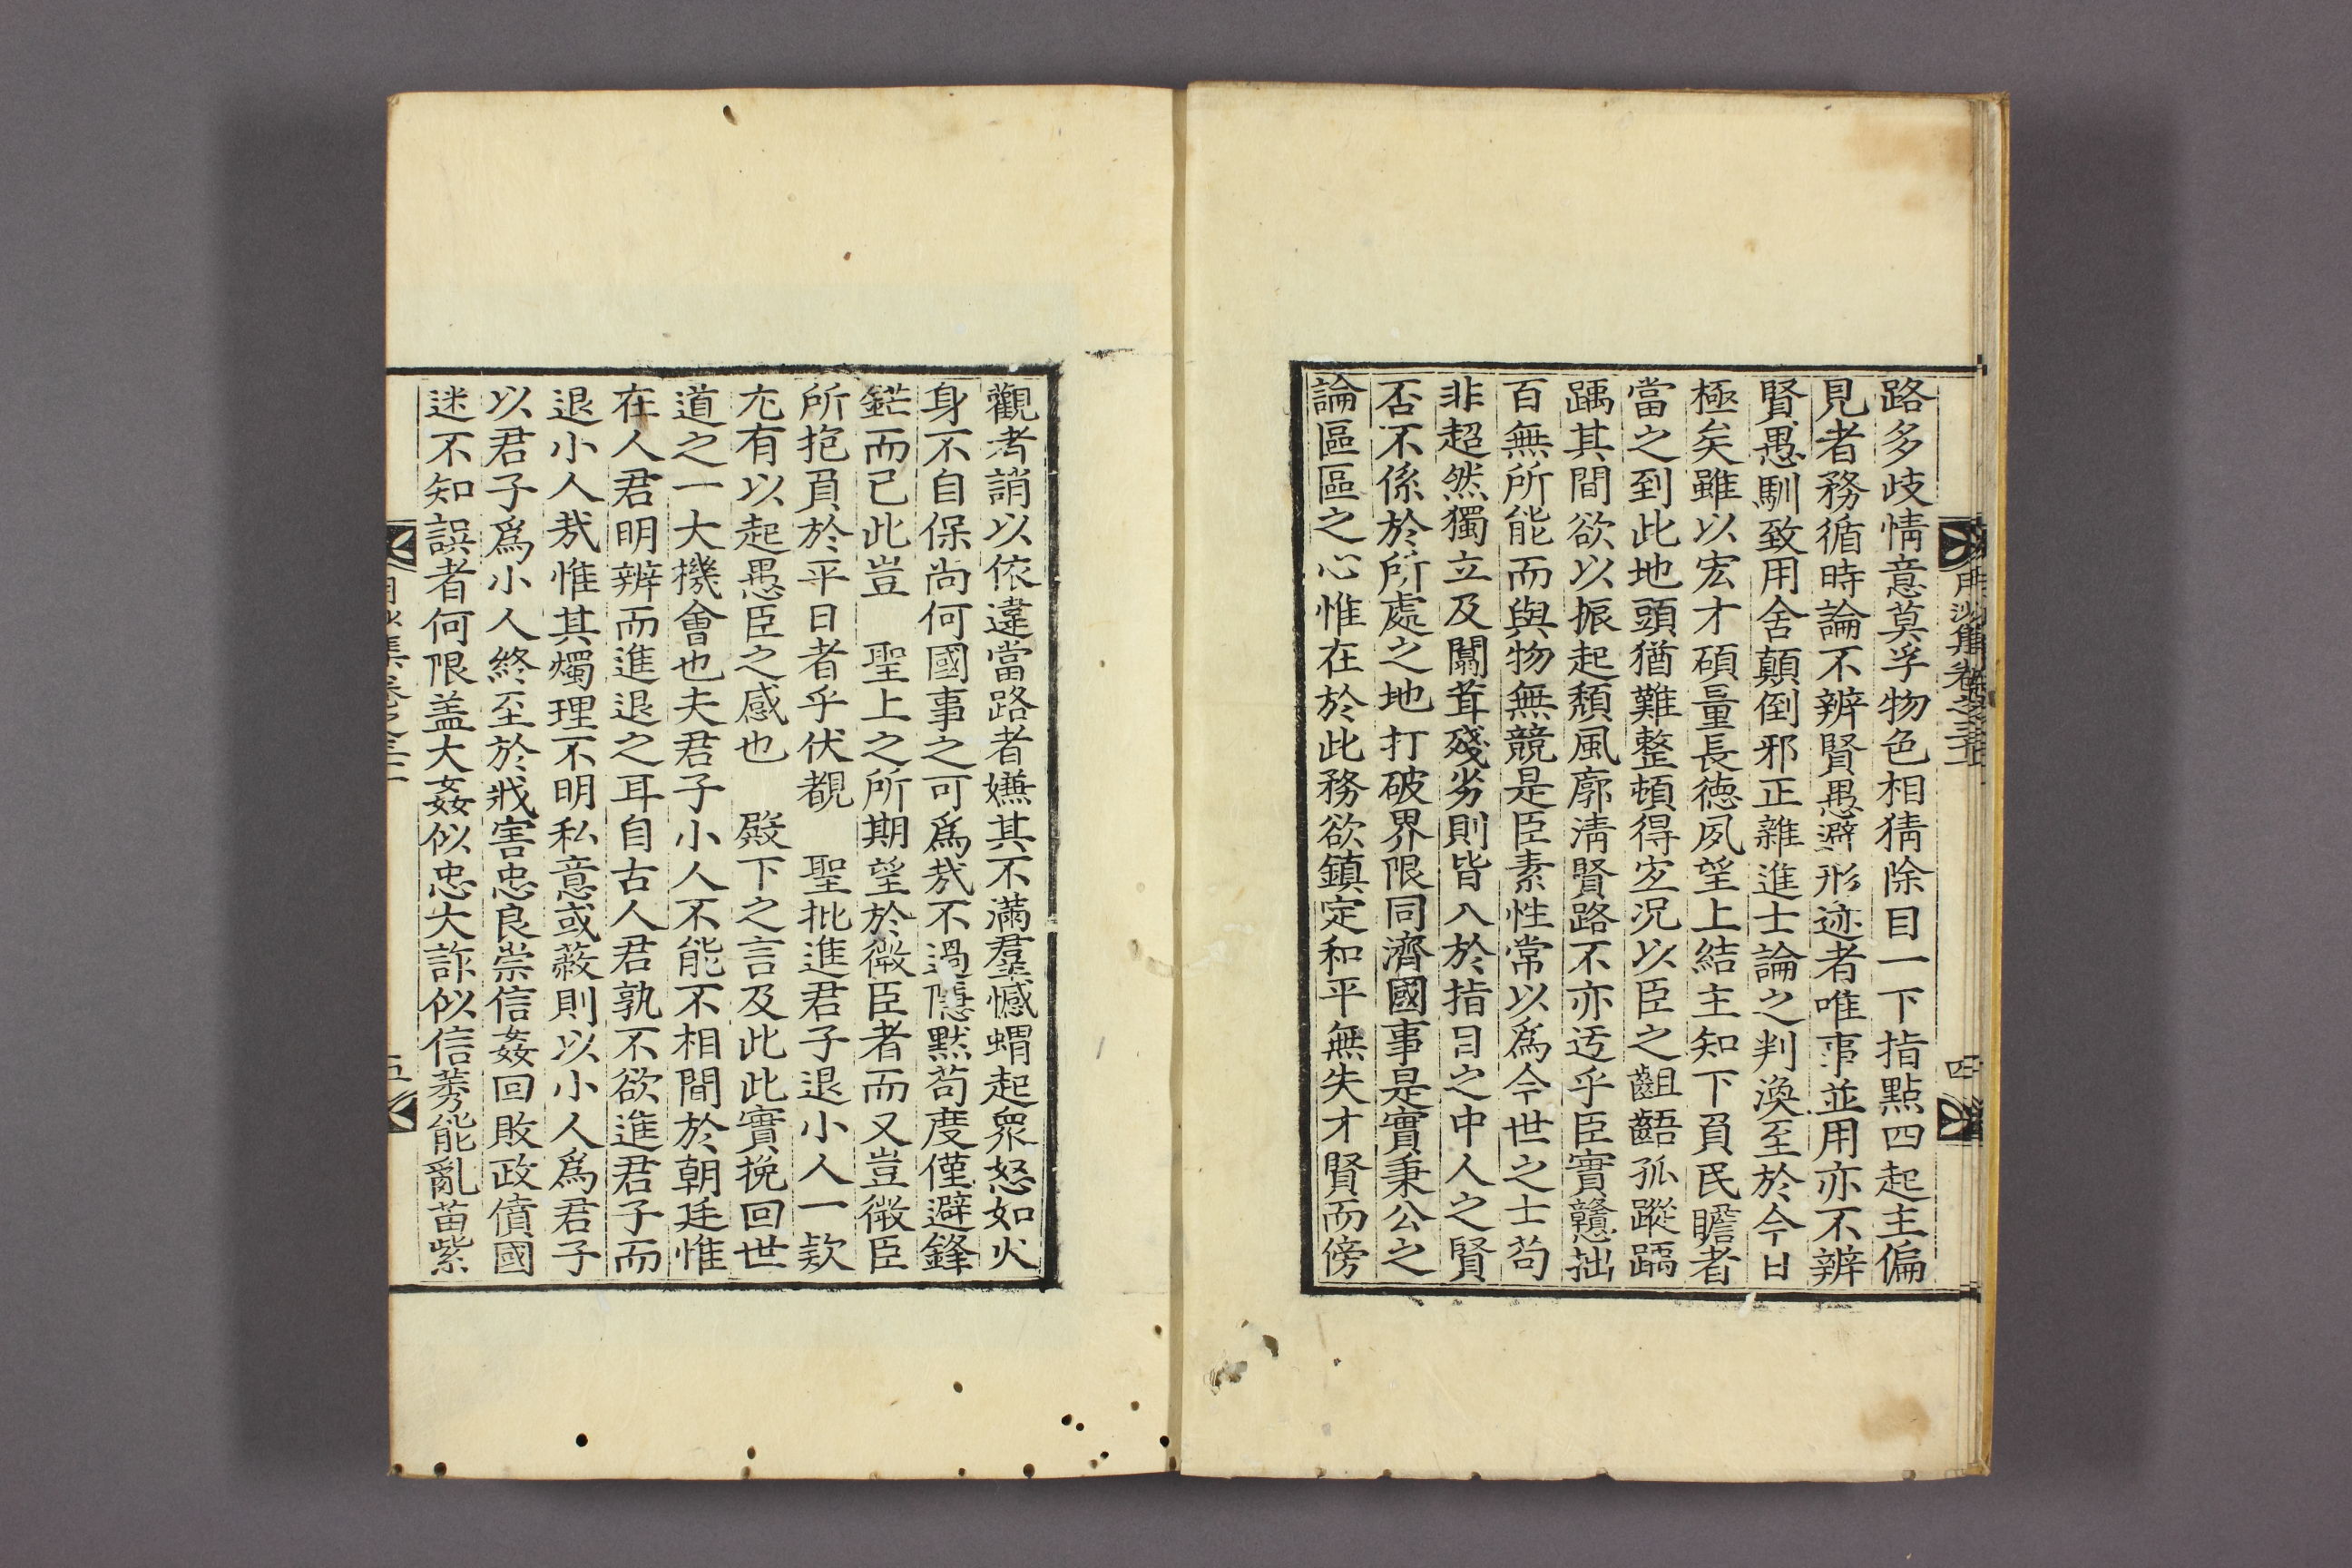 路多歧情意莫孚物色相猜除目一下指點四起主偏
見者務循時論不辨賢愚避形迹者唯事並用亦不辨
賢愚馴致用舍顛倒邪正雜進士論之判渙至於今日
極矣雖以宏才碩量長德夙望上結主知下負民瞻者
當之到此地頭猶難整頓得定况以臣之齟齬孤蹤踽
踽其間欲以振起頹風廓淸賢路不亦迃乎臣實戇拙
百無所能而與物無競是臣素性常以爲今世之士苟
非超然獨立及闒茸殘劣則皆入於指目之中人之賢
否不係於所處之地打破界限同濟國事是實秉公之
論區區之心惟在於此務欲鎮定和平無失才賢而傍
觀者誚以依違當路者嫌其不滿羣憾蝟起衆怒如火
身不自保尚何國事之可爲㢤不過隱默苟度僅避鋒
鋩而已此豈 聖上之所期望於微臣者而又豈微臣
所抱負於平日者乎伏覩 聖批進君子退小人一款
尤有以起愚臣之感也 殿下之言及此此實挽回世
道之一大機會也夫君子小人不能不相間於朝廷惟
在人君明辨而進退之耳自古人君孰不欲進君子而
退小人㢤惟其燭理不明私意或蔽則以小人爲君子
以君子爲小人終至於戕害忠良崇信姦回敗政僨國
迷不知誤者何限盖大姦似忠大詐似信莠能亂苗紫